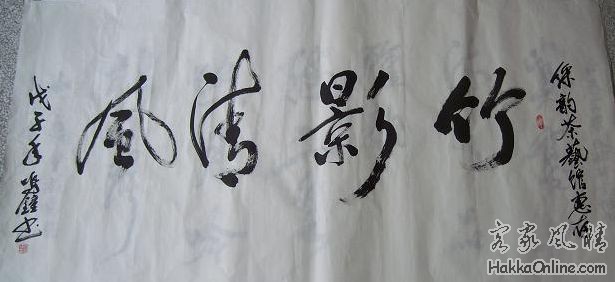 竹影清風
韵茶藝館惠存
戊子年
書
客家風情
HakkaOnline.com